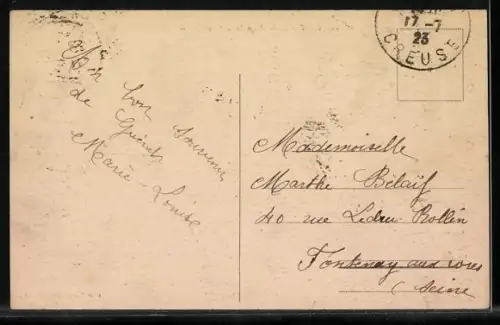 Un bon souvenir
de Guéret
Marie-Louise
17-7
23
CREUSE
Mademoiselle
Marthe Belaïf
40 rue Ledru-Rollin
Fontenay aux roses
(Seine